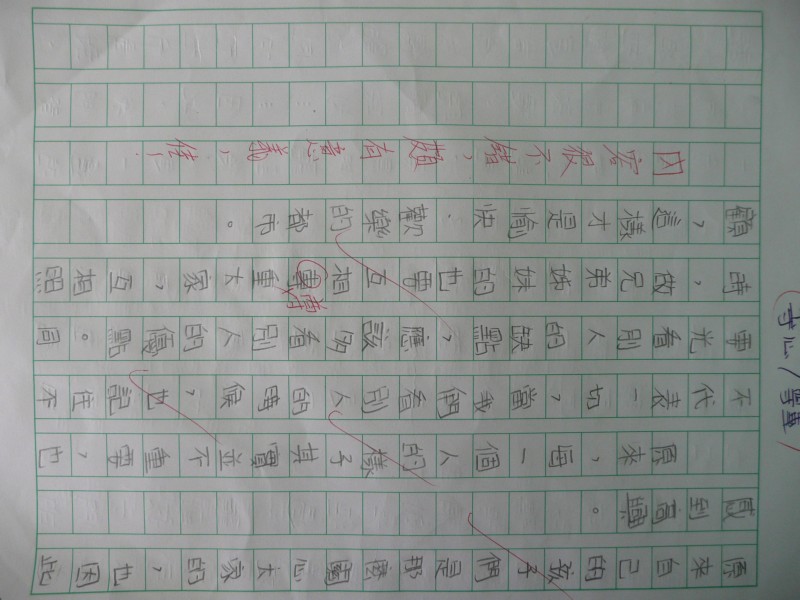 原來自己的孩子們是那麼團心大家的，也因此
感到高興。
原來，每一個人的樣子其實並不重要，也
不代表一切，當我們看別人的時候，也記住不
要光看別人的缺點，應該多看別人的優點。同
時，做兄弟姊妹的也要互相尊重大家，互相照
尊
顧，這樣才是愉快、歡樂的都市。
內容很不錯，頗有意義，佳！